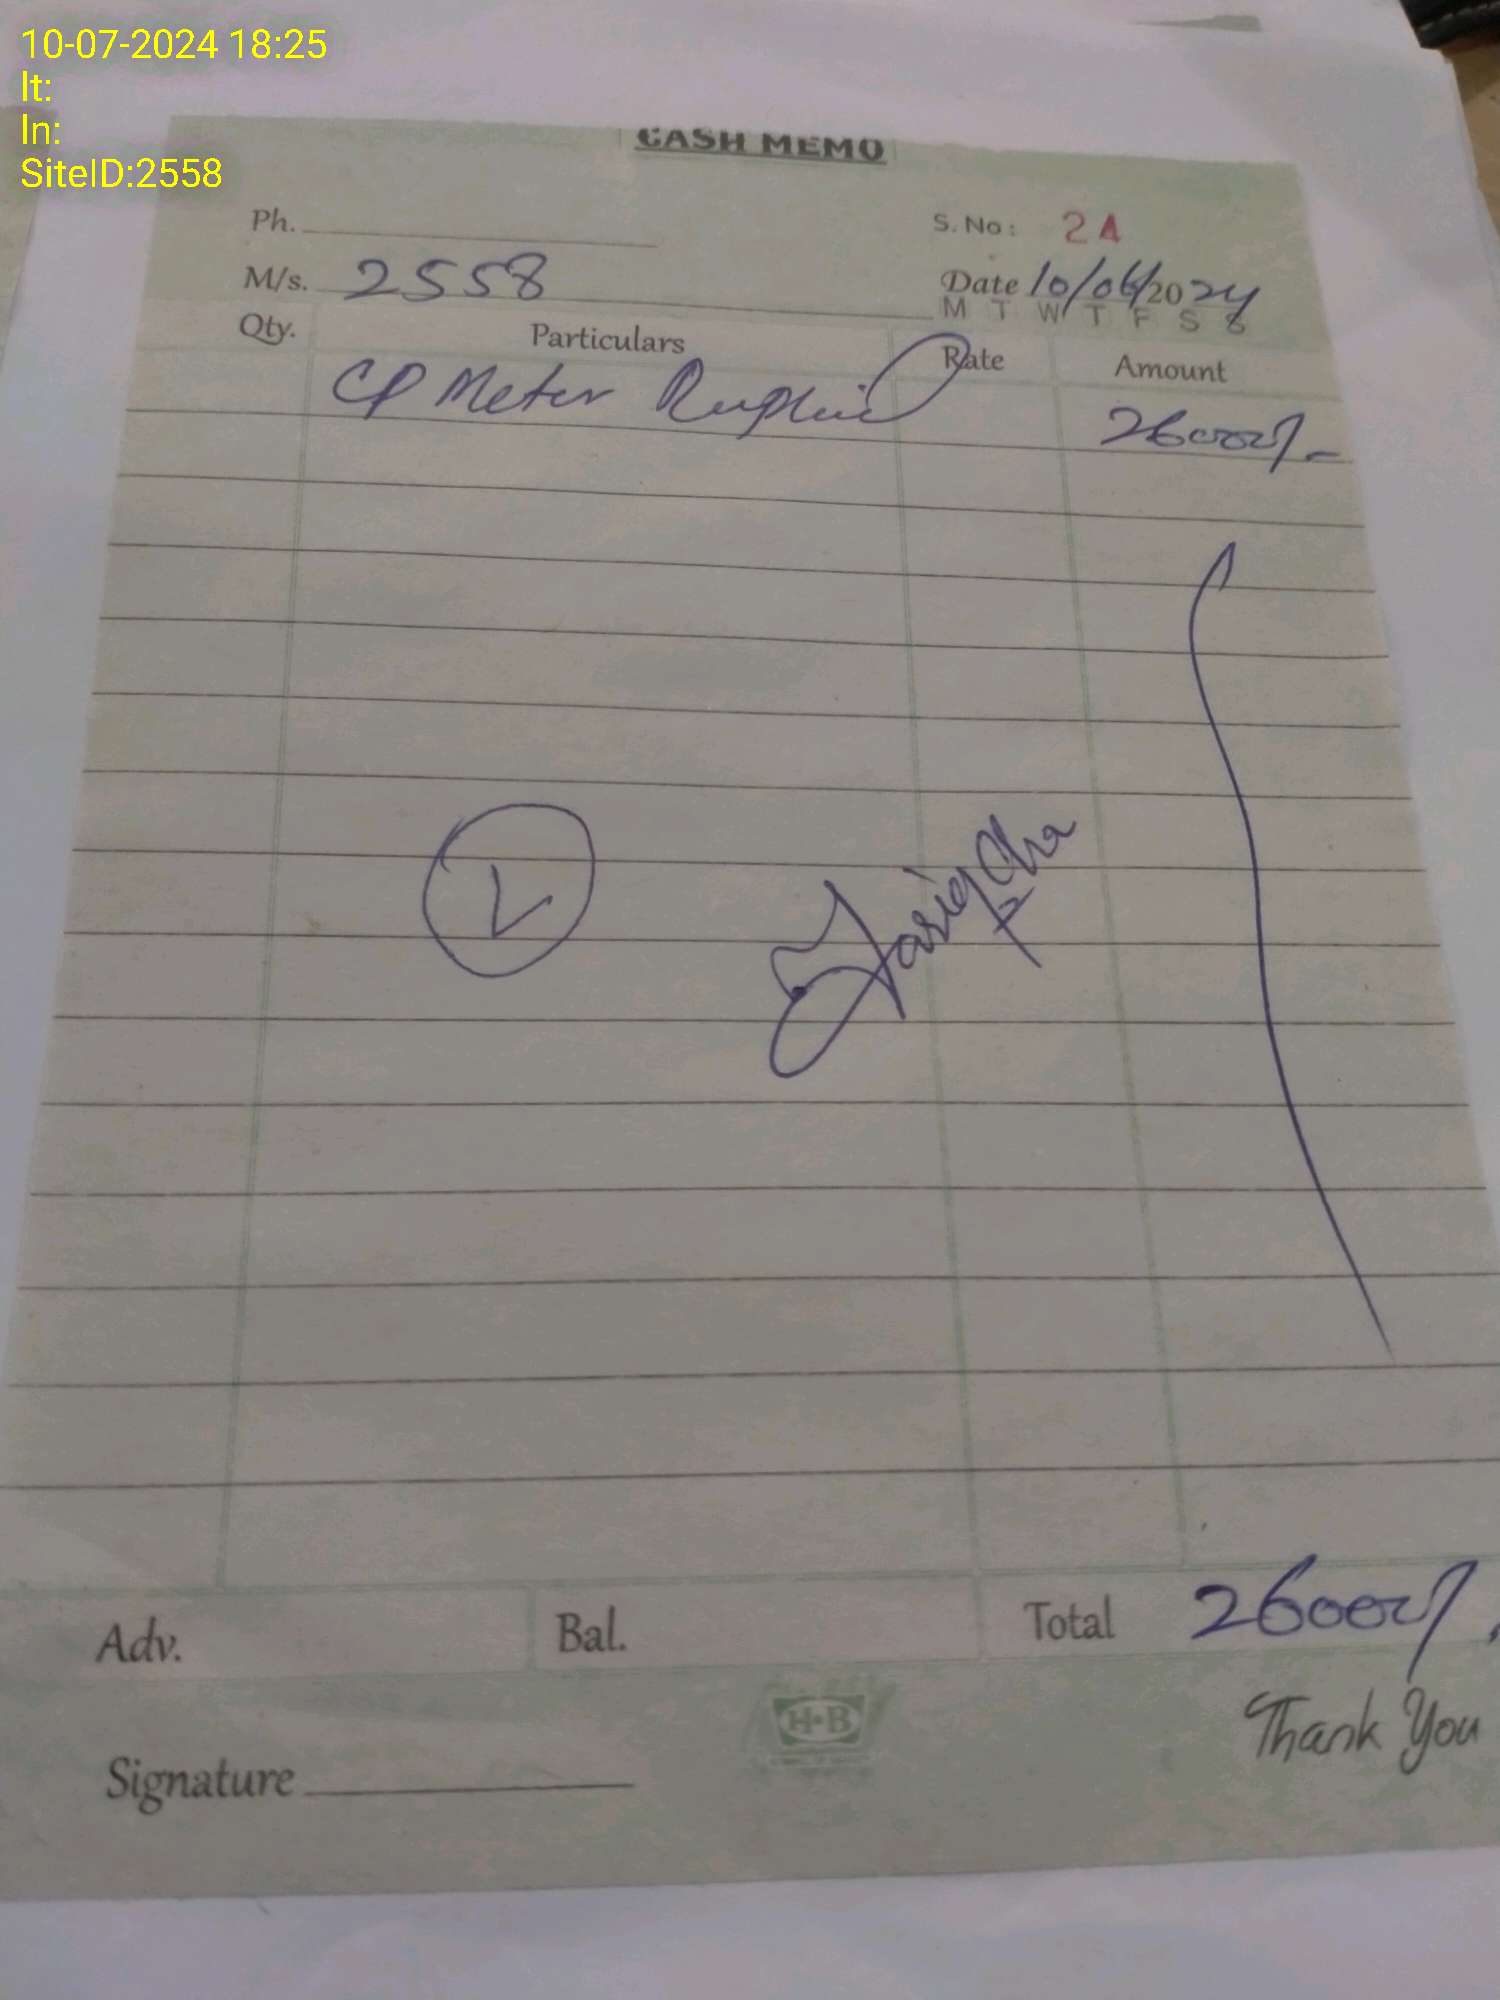 10-07-2024 18:25
lt:
ln:
SiteID:2558
CASH MEMO
Ph.
S. No: 24
M/s. 2558
Date 10/06/2024
M T W T F S S
Qty. Particulars Rate Amount
CP Meter 26000/-
Tariq
Adv. Bal. Total 26000/-
H·B
Thank You
Signature